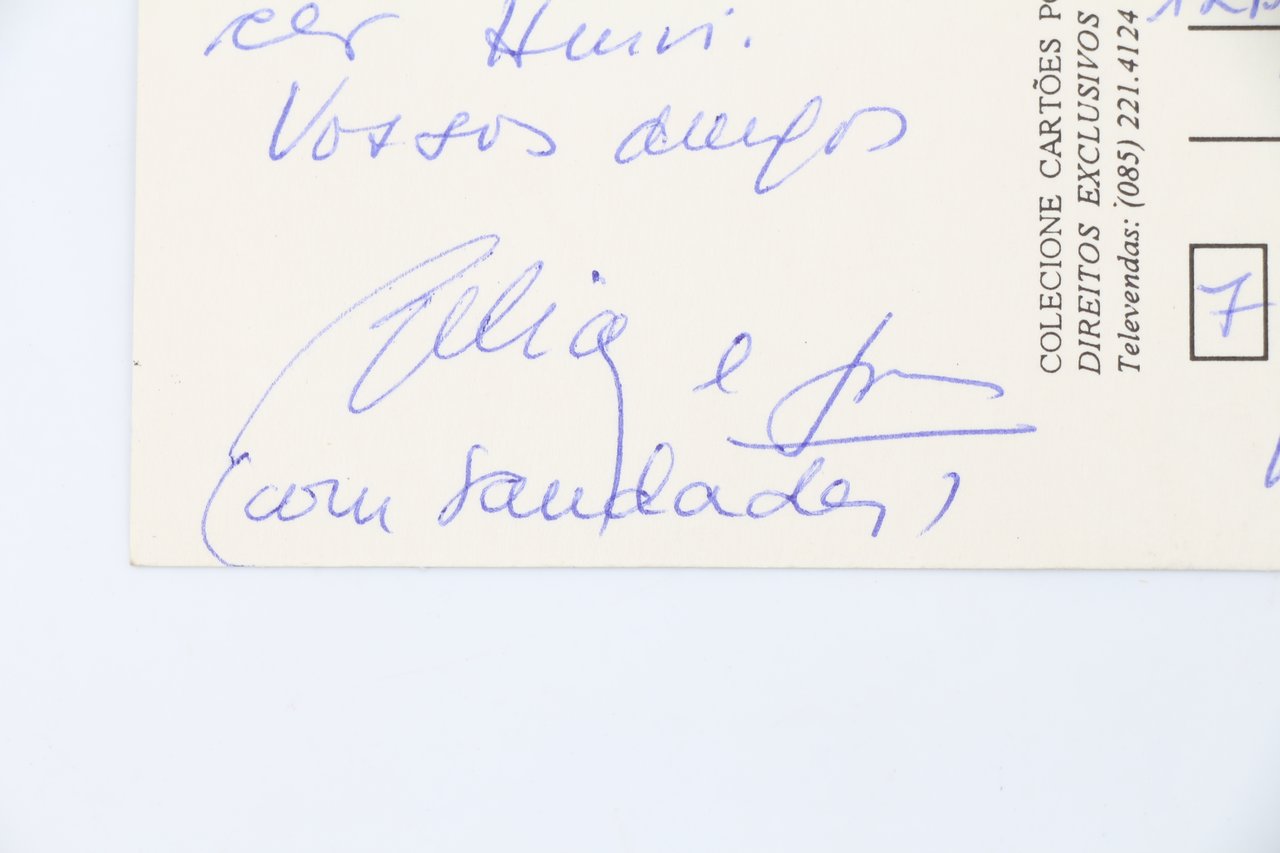 cer Henri.
Vossos amigos
Célia e
(com saudades)
COLECIONE CARTÕES PO
DIREITOS EXCLUSIVOS
Televendas: (085) 221.4124
7